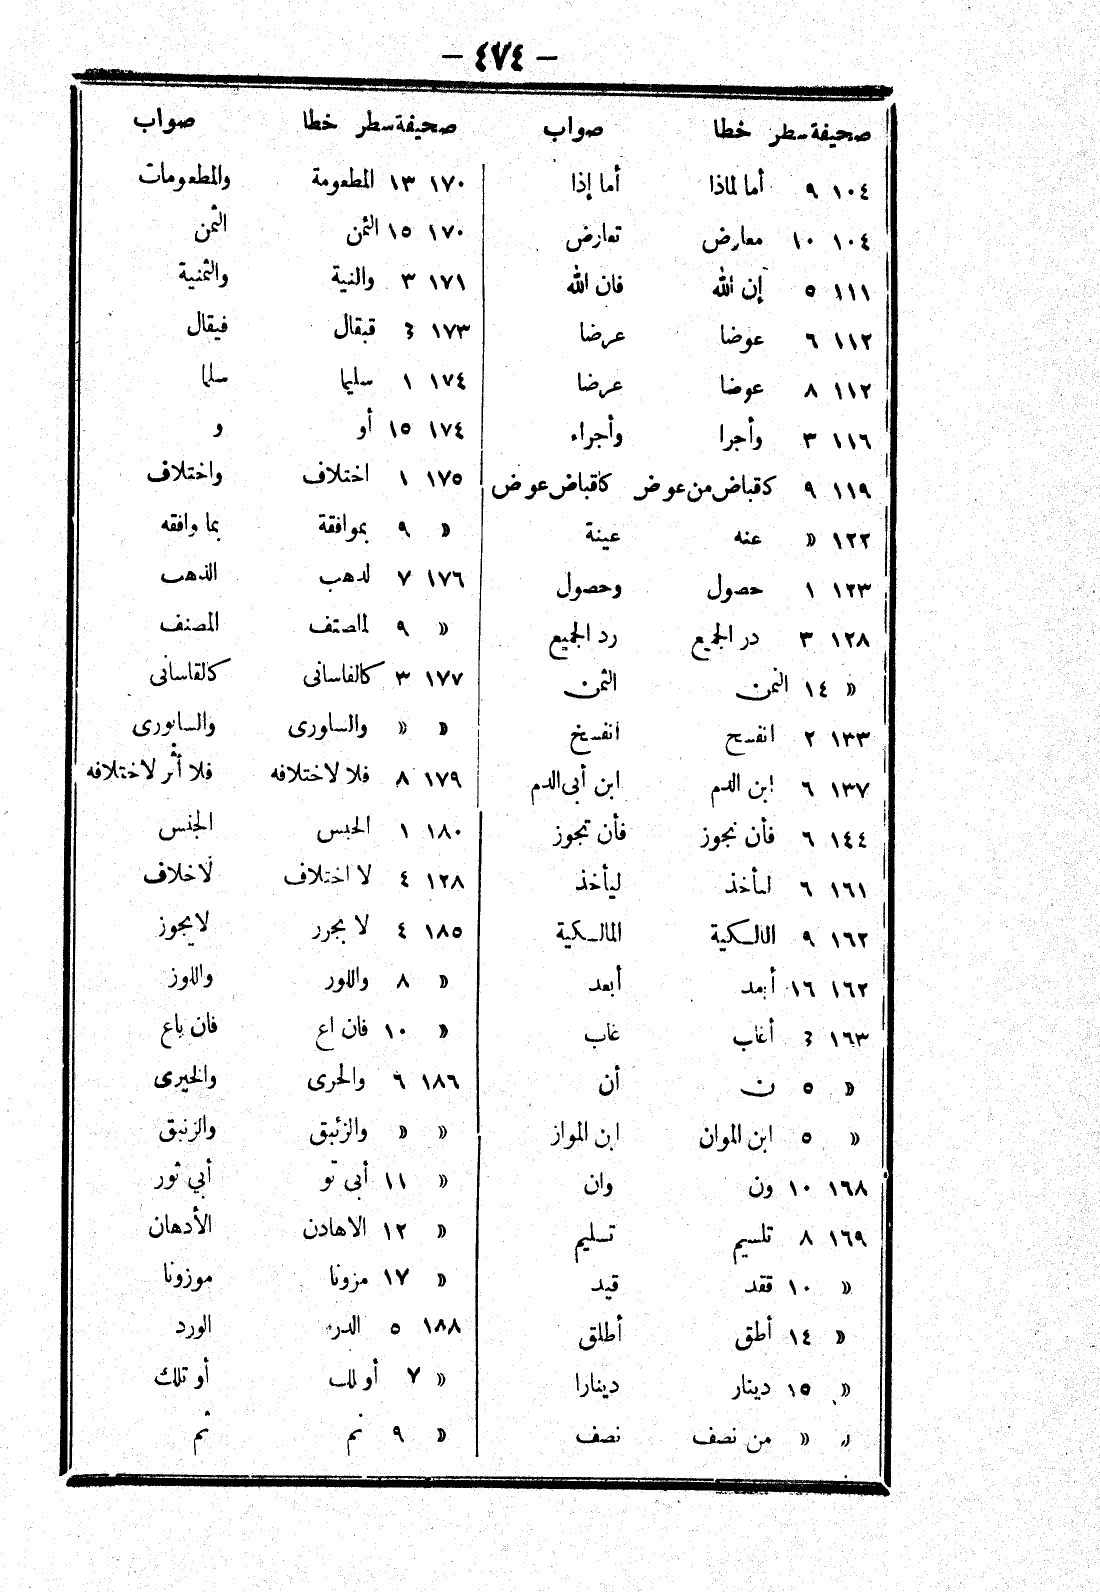 — ٤٧٤ —
صحيفة سطر خطا صواب
١٠٤ ٩ أما لماذا أما إذا
١٠٤ ١٠ معارض تعارض
١١١ ٥ إن الله فان الله
١١٢ ٦ عوضا عرضا
١١٢ ٨ عوضا عرضا
١١٦ ٣ وأجرا وأجراء
١١٩ ٩ كقباض من عوض كاقباض عوض
١٢٢ » عنه عينة
١٢٣ ١ حصول وحصول
١٢٨ ٣ در الجميع رد الجميع
» ١٤ الثمن الثمن
١٣٣ ٢ انفسح انفسخ
١٣٧ ٦ ابن الدم ابن أبى الدم
١٤٤ ٦ فأن نجوز فأن تجوز
١٦١ ٦ لىأخذ ليأخذ
١٦٢ ٩ المالكية المالكية
١٦٢ ١٦ أبعد أبعد
١٦٣ ٤ أغاب غاب
» ٥ ن أن
» ٥ ابن الموان ابن المواز
١٦٨ ١٠ ون وان
١٦٩ ٨ تلسيم تسليم
» ١٠ ققد قيد
» ١٤ أطق أطلق
» ١٥ دينار دينارا
» » من نصف نصف
صحيفة سطر خطا صواب
١٧٠ ١٣ المطعومة والمطعومات
١٧٠ ١٥ الثمن الثمن
١٧١ ٣ والنية والثمنية
١٧٣ ٤ قبقال فيقال
١٧٤ ١ سليما سلما
١٧٤ ١٥ أو و
١٧٥ ١ اختلاف واختلاف
» ٩ بموافقة بما وافقه
١٧٦ ٧ لدهب الذهب
» ٩ لمالصتف المصنف
١٧٧ ٣ كالفاسانى كالقاسانى
» » والساورى والسابورى
١٧٩ ٨ فلا لاختلافه فلا أثر لاختلافه
١٨٠ ١ الحبس الجنس
١٢٨ ٤ لا اختلاف لاخلاف
١٨٥ ٤ لا يجرر لا يجوز
» ٨ واللور واللوز
» ١٠ فان اع فان باع
١٨٦ ٦ والحرى والخيرى
» » والزئبق والزنبق
» ١١ أبى تو أبي ثور
» ١٢ الاهادن الأدهان
» ١٧ مزونا موزونا
١٨٨ ٥ الدر الورد
» ٧ أو لك أو تلك
» ٩ نم ثم